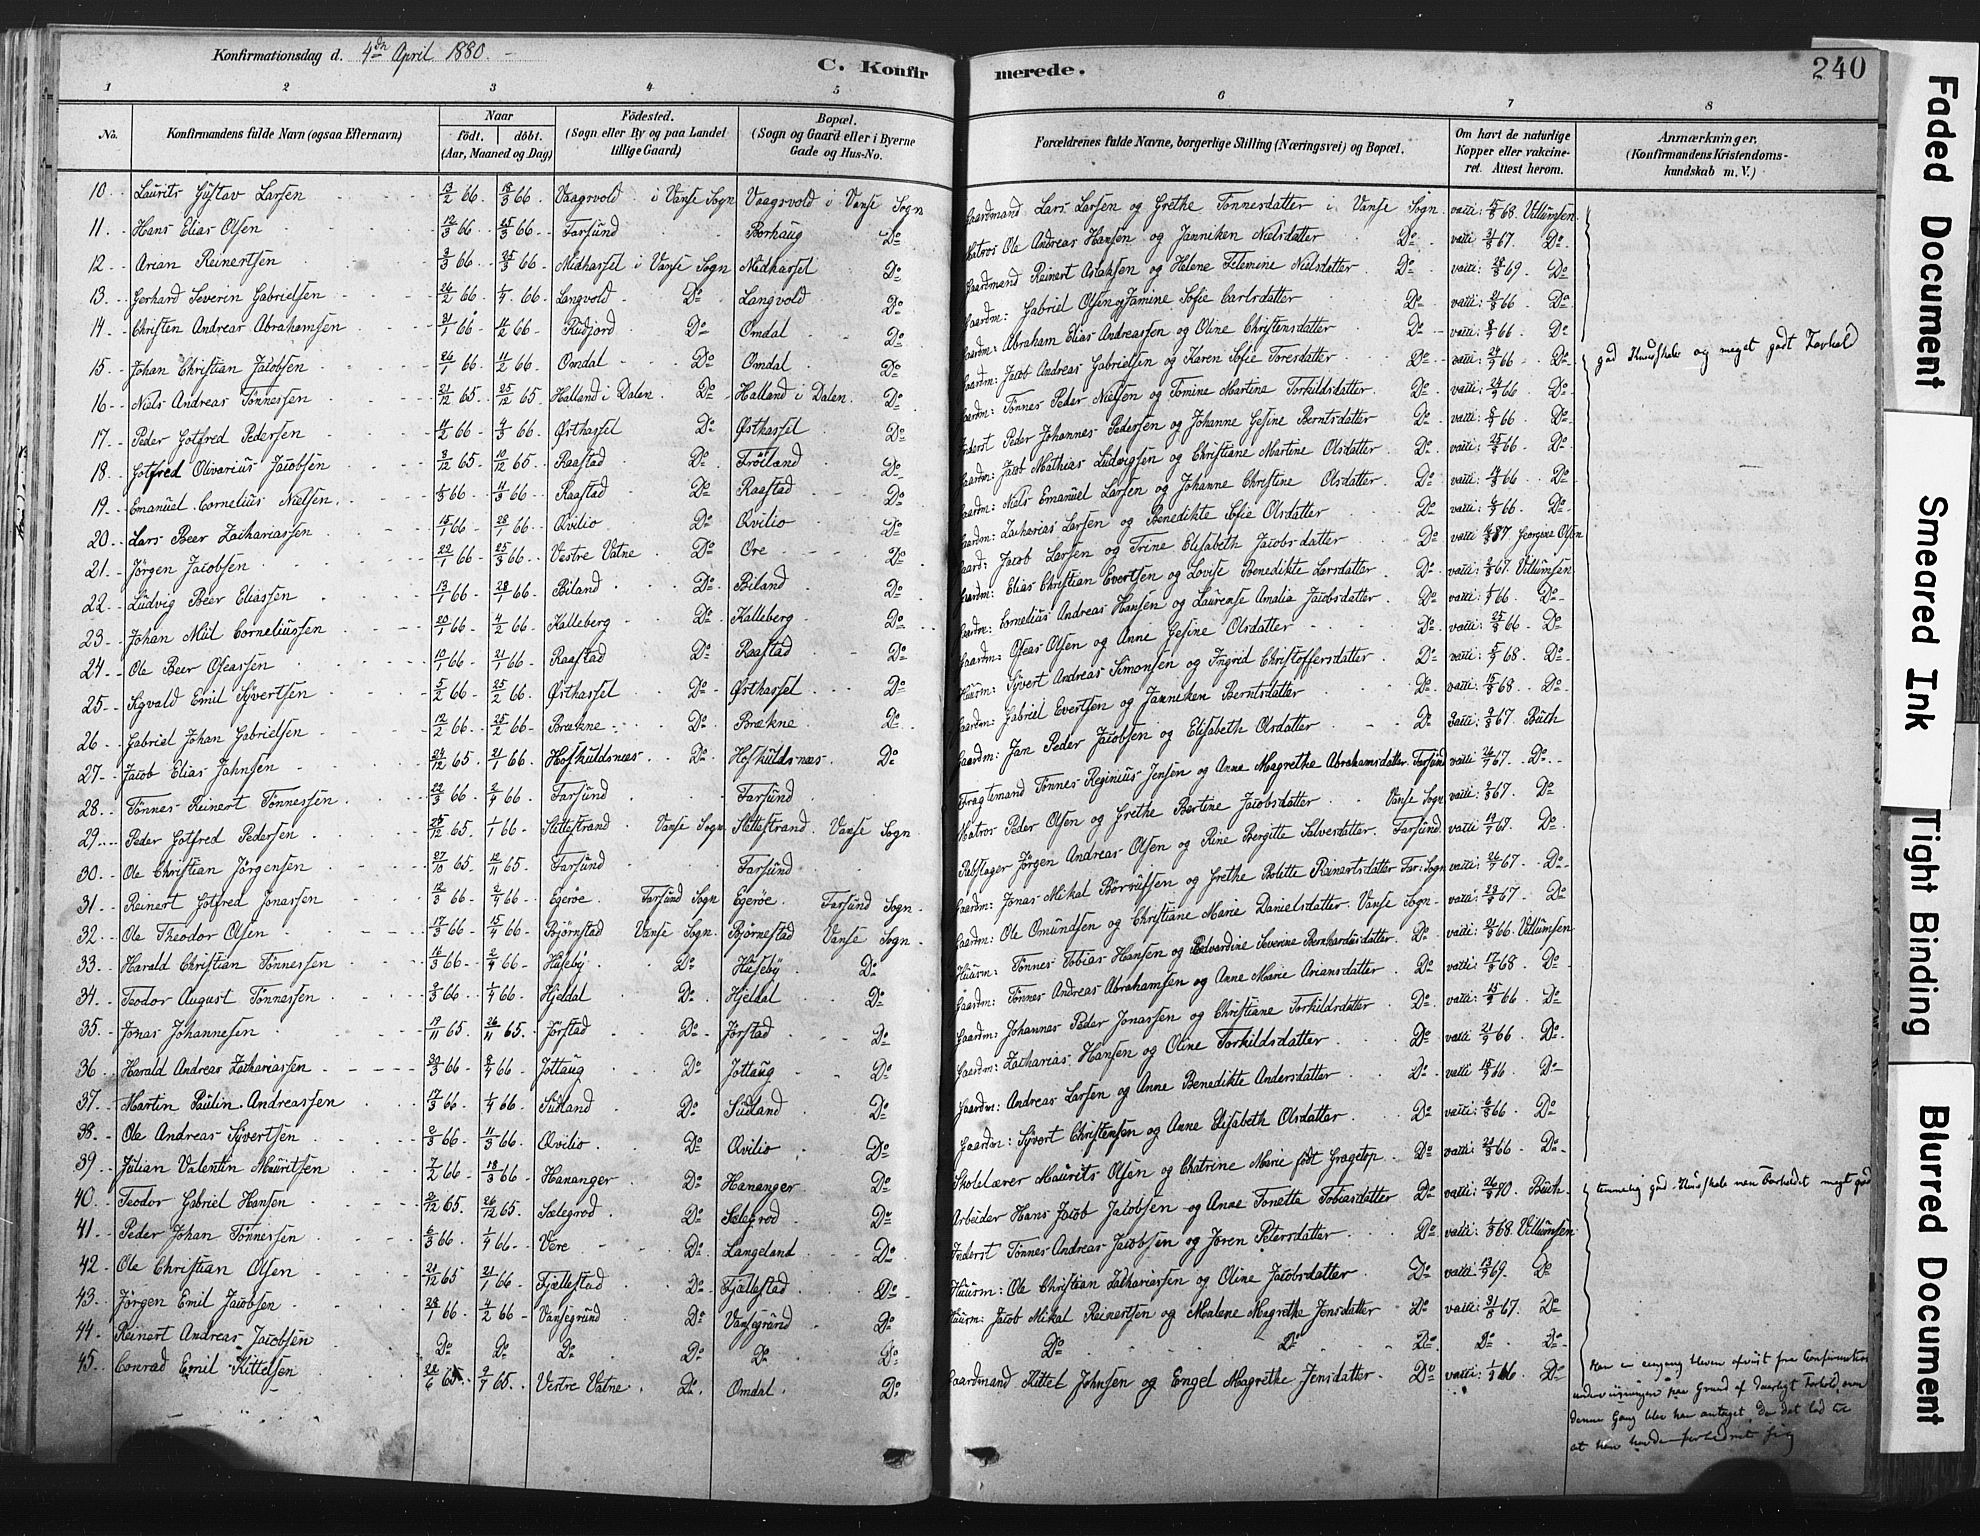 Konfirmationsdag d. 4de April 1880.
C. Konfirmerede.
240
1 2 3 4 5 6 7 8
No. Konfirmandens fulde Navn (ogsaa Efternavn) Naar født. døbt. (Aar, Maaned og Dag) Fødested. (Sogn eller By og paa Landet tillige Gaard) Bopæl. (Sogn og Gaard eller i Byerne Gade og Hus-No. Forældrenes fulde Navne, borgerlige Stilling (Næringsvei) og Bopæl. Om havt de naturlige Kopper eller vakcineret. Attest herom. Anmærkninger, (Konfirmandens Kristendomskundskab m. V.)
10 Laurits Gustav Larsen 13/2 66 18/3 66 Vaagsvold i Vanse Sogn Vaagsvold i Vanse Sogn Gaardmand Lars Larsen og Grethe Tønnesdatter i Vanse Sogn 68 Villumsen
11 Hans Elias Olsen 12/3 66 25/3 66 Farsund Borhaug Do Matros Ole Andreas Hansen og Janniken Nielsdatter Do 67 Do
12 Arian Reinertsen 3/3 66 25/3 66 Midhassel i Vanse Sogn Midhassel Do Gaardmand Reinert Aslaksen og Helene Nielsdatter Do 69 Do
13 Gerhard Severin Gabrielsen 26/2 66 1/4 66 Langvold Do Langvold Do Gaardm: Gabriel Olsen og Jamine Sofie Carlsdatter Do 66 Do
14 Christen Andreas Abrahamsen 21/1 66 11/2 66 Do Omdal Do Gaardm: Abraham Elias Andreassen og Oline Christensdatter Do 66 Do
15 Johan Christian Jacobsen 26/1 66 11/2 66 Omdal Do Omdal Do Gaardm: Jacob Andreas Gabrielsen og Karen Sofie Toresdatter Do 66 Do god Kundskab og meget godt Forhold
16 Niels Andreas Tønnessen 21/12 65 25/12 65 Halland i Dalen Do Halland i Dalen Do Gaardm: Tønnes Peder Nielsen og Tomine Martine Torkildsdatter Do 66 Do
17 Peder Gotfred Pedersen 11/2 66 4/3 66 Østhassel Do Østhassel Do Inderst Peder Johannes Pedersen og Johanne Gesine Berntsdatter Do 66 Do
18 Gotfred Olivarius Jacobsen 3/12 65 10/12 65 Raastad Do Frøiland Do Gaardm: Jacob Mathias Ludvigsen og Christiane Martine Olsdatter Do 66 Do
19 Emanuel Cornelius Nielsen 66 11/3 66 Raastad Do Raastad Do Gaardm: Niels Emanuel Larsen og Johanne Christine Olsdatter Do 66 Do
20 Lars Beer Zachariassen 66 28/1 66 Qvilio Do Qvilio Do Gaardm: Zacharias Larsen og Benedikte Sofie Olsdatter Do 66 Do
21 Jørgen Jacobsen 22/1 66 25/3 66 Vestre Vatne Do Ore Do Gaard: Jacob Larsen og Trine Elisabeth Jacobsdatter Do Georgine Olsen
22 Ludvig Beer Eliassen 13/1 66 28/1 66 Biland Do Biland Do Gaardm: Elias Christian Evertsen og Lovise Benedikte Larsdatter Do 67 Villumsen
23 Johan Corneliussen 20/1 66 4/2 66 Kalleberg Do Kalleberg Do Gaardm: Cornelius Andreas Hansen og Laurense Amalia Jacobsdatter Do 66 Do
24 Ole Beer Oseassen 10/1 66 21/1 66 Raastad Do Raastad Do Gaardm: Oseas Olsen og Anne Gesine Olsdatter Do 66 Do
25 Emil Syvertsen 5/2 66 25/2 66 Østhassel Do Østhassel Do Huusm: Syvert Andreas Simonsen og Ingrid Christoffersdatter Do 68 Do
26 Gabriel Johan Gabrielsen 12/2 66 25/2 66 Brækne Do Brækne Do Gaardm: Gabriel Evertsen og Janniken Berntsdatter Do 68 Do
27 Jacob Elias Jahnsen 24/12 65 21/1 66 Hoskuldsnæs Do Hoskuldsnæs Do Gaardm: Jan Peder Jacobsen og Elisabeth Olsdatter Do 67 Buch
28 Tønnes Reinert Tønnessen 22/3 66 2/4 66 Farsund Farsund Fragtemand Tønnes Reginius Jensen og Anne Magrethe Abrahamsdatter Farsund 67 Do
29 Peder Gotfred Pedersen 25/12 65 1/1 66 Slettestrand Vanse Sogn Slettestrand Vanse Sogn Matros Peder Olsen og Grethe Bertine Jacobsdatter Vanse Sogn 67 Do
30 Ole Christian Jørgensen 27/10 65 12/11 65 Farsund Farsund Rebslager Jørgen Andreas Olsen og Rine Bergitte Salvesdatter Farsund 67 Do
31 Reinert Gotfred Jonassen 12/3 66 2/4 66 Egerøe Farsund Sogn Egerøe Farsund Sogn Gaardm: Jonas Mikal og Grethe Bolette Reinertsdatter Far: Sogn 67 Do
32 Ole Theodor Olsen 17/3 66 15/4 66 Bjørnstad Vanse Sogn Bjørnestad Vanse Sogn Gaardm: Ole Omundsen og Christiane Marie Danielsdatter Vanse Sogn 67 Do
33 Harald Christian Tønnessen 16/3 66 2/4 66 Huseby Do Huseby Do Huusm: Tønnes Tobias Hansen og Edvardine Severine Bernhardusdatter Do 66 Villumsen
34 Teodor August Tønnessen 2/3 66 1/4 66 Hjeldal Do Hjeldal Do Gaardm: Tønnes Andreas Abrahamsen og Anne Marie Ariansdatter Do 68 Do
35 Jonas Johannesen 19/11 65 26/11 65 Jørstad Do Jørstad Do Gaardm: Johannes Peder Jonassen og Christiane Torkildsdatter Do 66 Do
36 Harald Andreas Zachariassen 66 66 Jottaug Do Jottaug Do Gaardm: Zacharias Hansen og Oline Torkildsdatter Do 66 Do
37 Martin Paulin Andreassen 12/3 66 1/4 66 Sudland Do Sudland Do Gaardm: Andreas Larsen og Anne Benedikte Andersdatter Do 66 Do
38 Ole Andreas Syvertsen 2/3 66 11/3 66 Qvilio Do Qvilio Do Gaardm: Syvert Christensen og Anne Elisabeth Olsdatter Do 66 Do
39 Julian Valentin Mauritsen 7/2 66 18/3 66 Hananger Do Hananger Do Skolelærer Maurits Olsen og Chatrine Marie født Do 66 Do
40 Teodor Gabriel Hansen 65 26/12 65 Sælegrod Do Sælegrod Do Arbeider Hans Jacob Jacobsen og Anne Tonette Tobiasdatter Do 70 Buch temmelig god Kundskab men Forholdet meget god
41 Peder Johan Tønnessen 6/3 66 1/4 66 Vere Do Langeland Do Inderst Tønnes Andreas Jacobsen og Joren Petersdatter Do 68 Villumsen
42 Ole Christian Olsen 21/12 65 21/1 66 Fjællestad Do Fjællestad Do Huusm: Ole Christian Zachariassen og Oline Jacobsdatter Do 69 Do
43 Jørgen Emil Jacobsen 28/1 66 4/2 66 Vansegrund Do Vansegrund Do Huusm: Jacob Mikal Reinertsen og Malene Magrethe Jensdatter Do 67 Do
44 Reinert Andreas Jacobsen Do Do Do Do Do Do Do Do Do Do Do
45 Conrad Emil Kittelsen 22/6 65 9/7 65 Vestre Vatne Do Omdal Do Gaardmand Kittel Johnsen og Engel Magrethe Jensdatter Do 66 Do
Han er engang bleven afvist fra Confirmations
undervisningen paa Grund af daarligt Forhold, men
denne Gang blev han antaget, da det lod til
at han havde forbedret sig
Faded Document
Smeared Ink
Tight Binding
Blurred Document